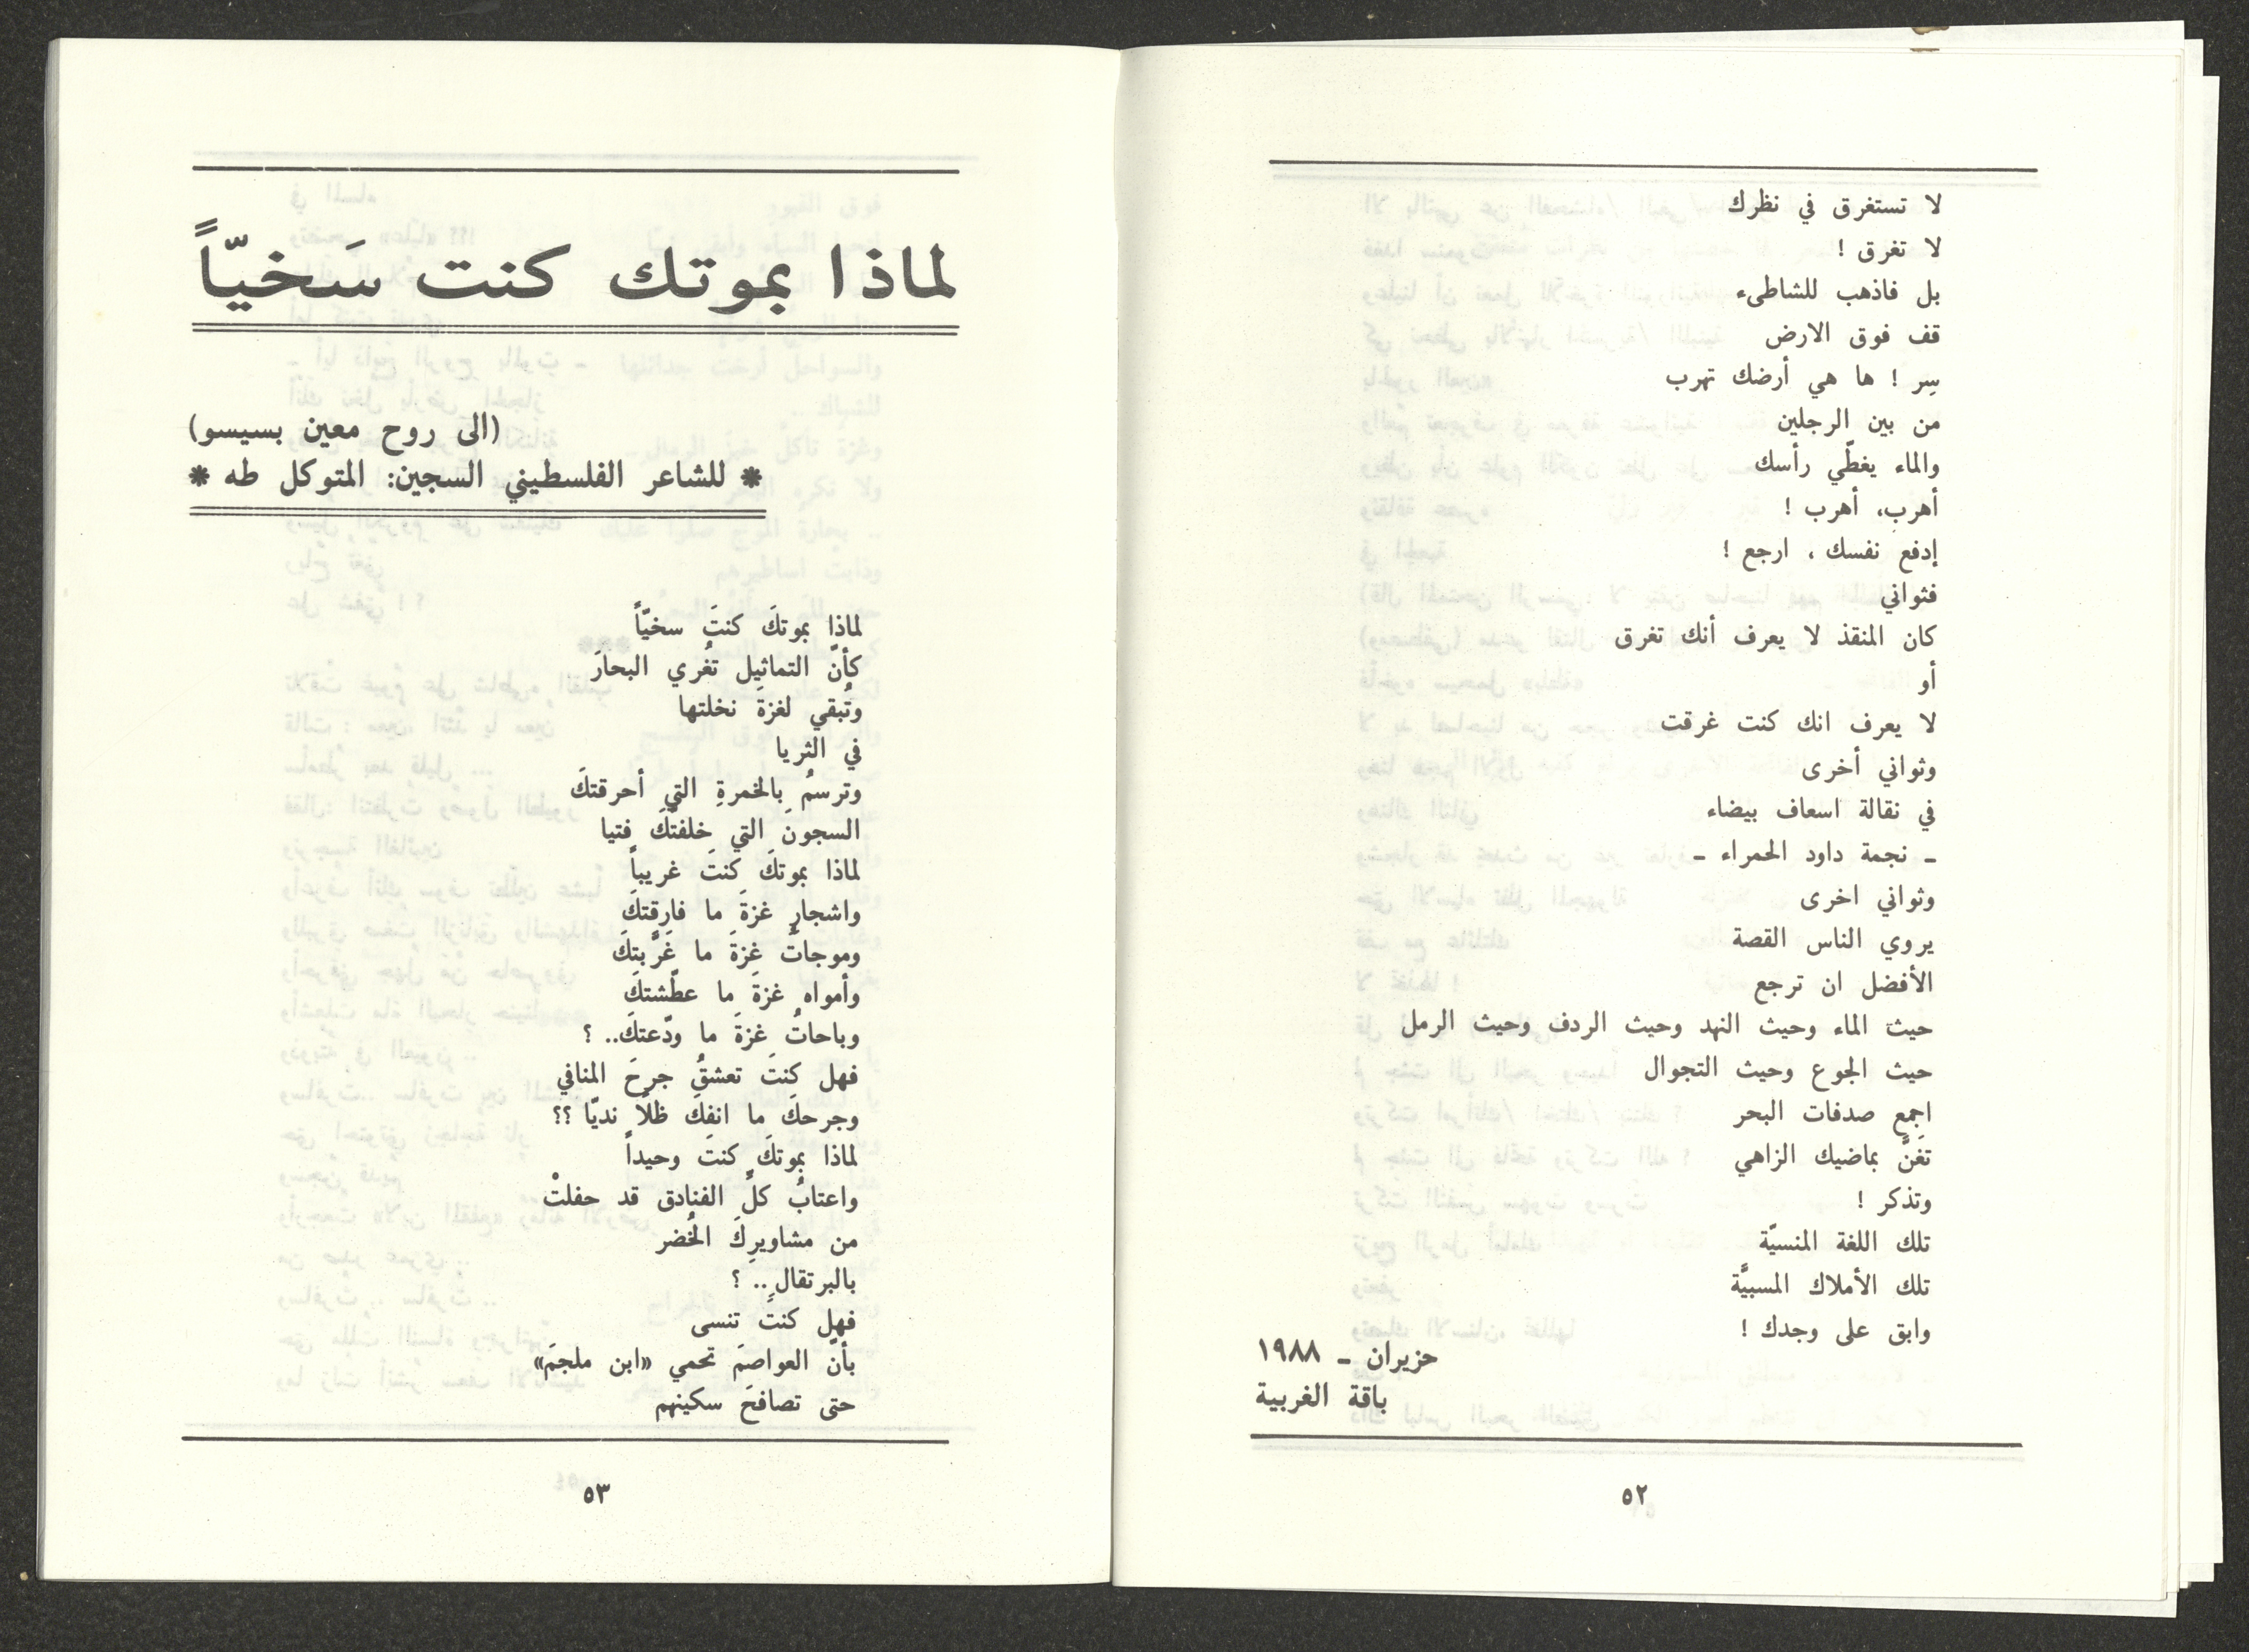 لا تستغرق في نظرك
لا تغرق !
بل فاذهب للشاطىء
قف فوق الارض
سِر ! ها هي أرضك تهرب
من بين الرجلين
والماء يغطّي رأسك
أهرب، أهرب !
إدفع نفسك ، ارجع !
فثواني
كان المنقذ لا يعرف أنك تغرق
أو
لا يعرف انك كنت غرقت
وثواني أخرى
في نقالة اسعاف بيضاء
ـ نجمة داود الحمراء ـ
وثواني اخرى
يروي الناس القصة
الأفضل ان ترجع
حيث الماء وحيث النهد وحيث الردف وحيث الرمل
حيث الجوع وحيث التجوال
اجمع صدفات البحر
تَغنَّ بماضيك الزاهي
وتذكر !
تلك اللغة المنسيّة
تلك الأملاك المسبيَّة
وابق على وجدك !
حزيران ـ ١٩٨٨
باقة الغربية
٥٢
لماذا بموتك كنت سَخيّاً
(الى روح معين بسيسو)
* للشاعر الفلسطيني السجين: المتوكل طه *
لماذا بموتكَ كنتَ سخيّاً
كأنّ التماثيل تُغري البحارَ
وتُبقي لغزةَ نخلتها
في الثريا
وترسمُ بالخمرةِ التي أحرقتكَ
السجونَ التي خلفتكَ فتيا
لماذا بموتكَ كنتَ غريباً
واشجار غزةَ ما فارقتكَ
وموجاتُ غزةَ ما غَرَّبتكَ
وأمواه غزةَ ما عطّشتكَ
وباحاتُ غزةَ ما ودّعتكَ.. ؟
فهل كنتَ تعشقُ جرحَ المنافي
وجرحكَ ما انفكَ ظلاً نديّا ؟؟
لماذا بموتكَ كنتَ وحيداً
واعتابُ كلِّ الفنادق قد حفلتْ
من مشاويركَ الخُضر
بالبرتقال .. ؟
فهل كنتَ تنسى
بأنّ العواصمَ تحمي «ابن ملجمَ»
حتى تصافحَ سكينهم
٥٣